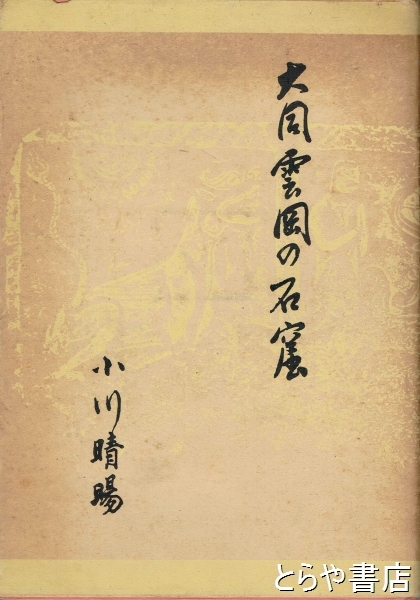 大同雲岡の石窟
小川晴暘
とらや書店